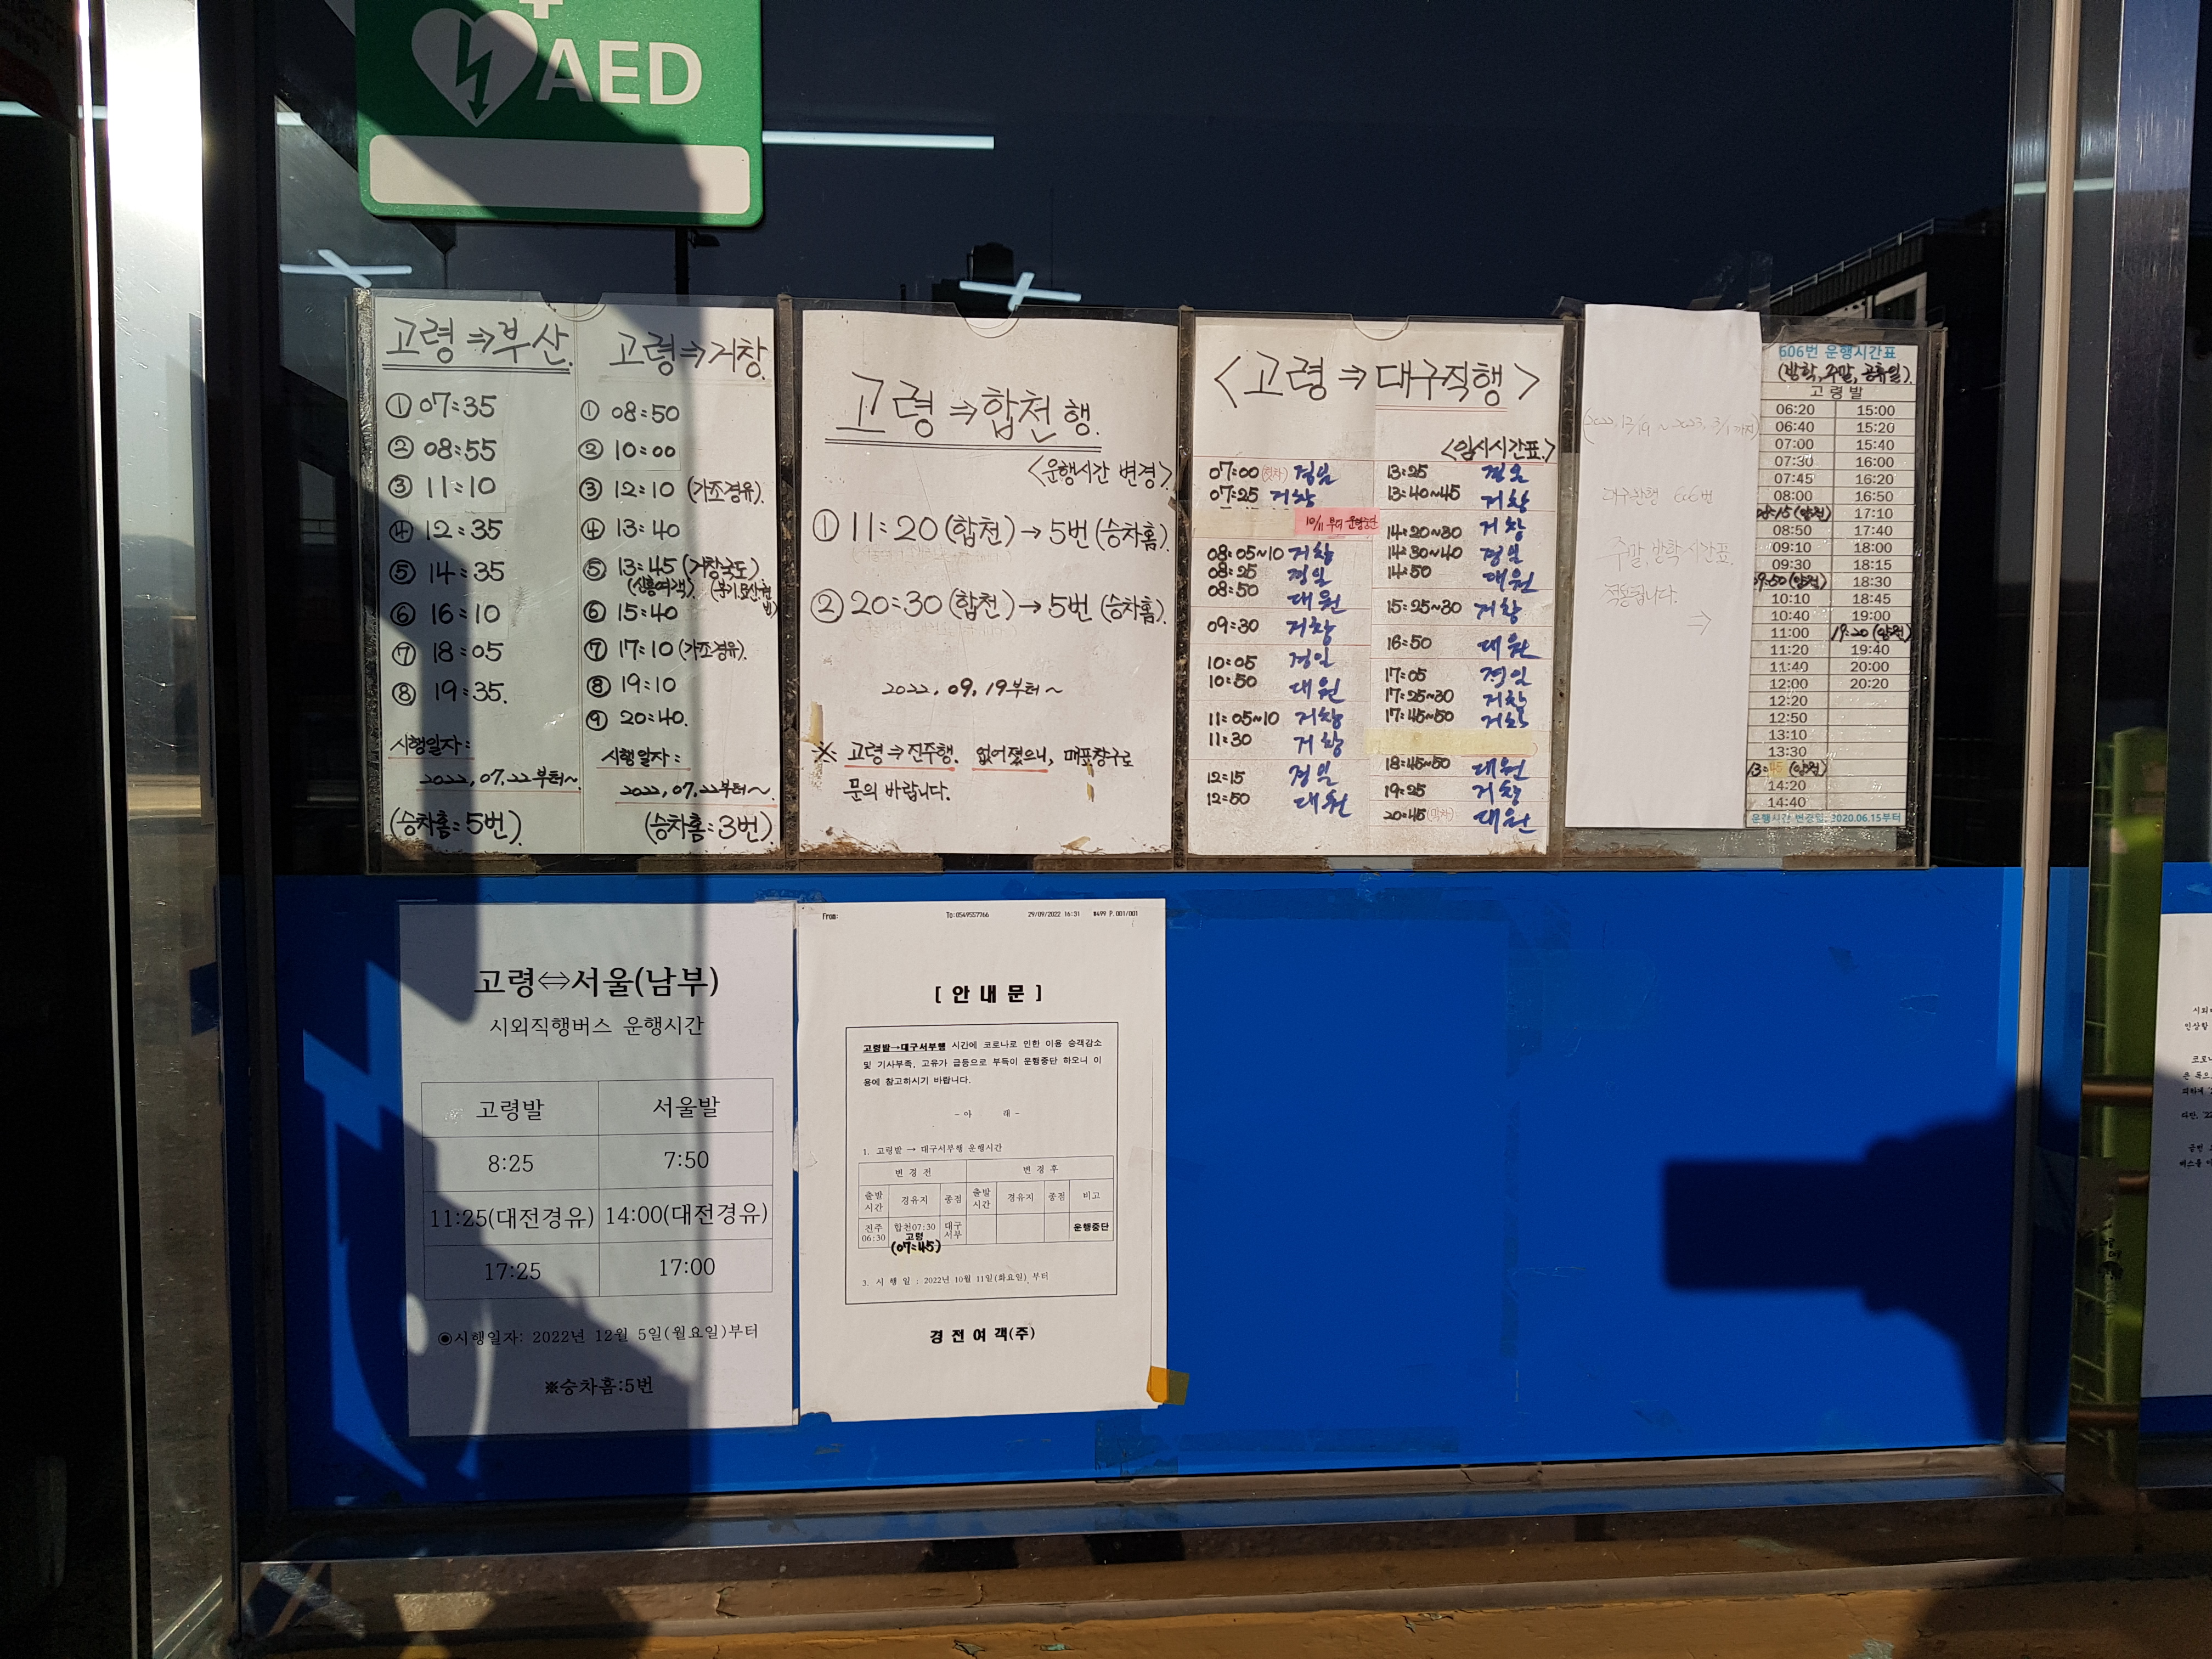 AED
고령⇒부산.
① 07:35
② 08:55
③ 11:10
④ 12:35
⑤ 14:35
⑥ 16:10
⑦ 18:05
⑧ 19:35.
시행일자:
2022, 07.22부터~
(승차홈:5번)
고령⇒거창.
① 08:50
② 10:00
③ 12:10 (가조경유).
④ 13:40
⑤ 13:45 (거창국도)
⑥ 15:40
⑦ 17:10 (가조경유).
⑧ 19:10
⑨ 20:40.
시행일자:
2022, 07.22부터~.
(승차홈:3번)
고령⇒합천행.
<운행시간 변경>
① 11:20 (합천)→ 5번 (승차홈).
② 20:30 (합천)→ 5번 (승차홈).
2022, 09, 19부터~
※ 고령⇒진주행. 없어졌으니, 매표창구로
문의 바랍니다.
<고령⇒대구직행>
<임시시간표.>
07:00 (첫차) 경일
07:25 거창
10/11 부터 운행중단
08:05~10 거창
08:25 경일
08:50 대원
09:30 거창
10:05 경일
10:50 대원
11:05~10 거창
11:30 거창
12:15 경일
12:50 대원
13:25 경일
13:40~45 거창
14:20~30 거창
14:30~40 경일
14:50 대원
15:25~30 거창
16:50 대원
17:05 경일
17:25~30 거창
17:45~50 거창
18:45~50 대원
19:25 거창
20:45 (막차) 대원
(2022, 12/19 ~ 2023, 3/1까지)
606번
주말, 방학 시간표.
적용됩니다.
⇒
606번 운행시간표
(방학, 주말, 공휴일).
고 령 발
06:20 15:00
06:40 15:20
07:00 15:40
07:30 16:00
07:45 16:20
08:00 16:50
08:15 (양전) 17:10
08:50 17:40
09:10 18:00
09:30 18:15
09:50 (양전) 18:30
10:10 18:45
10:40 19:00
11:00 19:20 (양전)
11:20 19:40
11:40 20:00
12:00 20:20
12:20
12:50
13:10
13:30
13:45 (양전)
14:20
14:40
운행시간 변경일: 2020.06.15부터
고령⇔서울(남부)
시외직행버스 운행시간
고령발 서울발
8:25 7:50
11:25(대전경유) 14:00(대전경유)
17:25 17:00
◉시행일자: 2022년 12월 5일(월요일)부터
※승차홈:5번
From: To:0549557766 29/09/2022 16:31 #499 P.001/001
[ 안 내 문 ]
고령발→대구서부행 시간에 코로나로 인한 이용 승객감소
및 기사부족, 고유가 급등으로 부득이 운행중단 하오니 이
용에 참고하시기 바랍니다.
- 아 래 -
1. 고령발 → 대구서부행 운행시간
변 경 전 변 경 후
출발시간 경유지 종점 출발시간 경유지 종점 비고
진주 06:30 합천07:30 고령 (07:45) 대구서부 운행중단
3. 시 행 일 : 2022년 10월 11일(화요일) 부터
경 전 여 객(주)